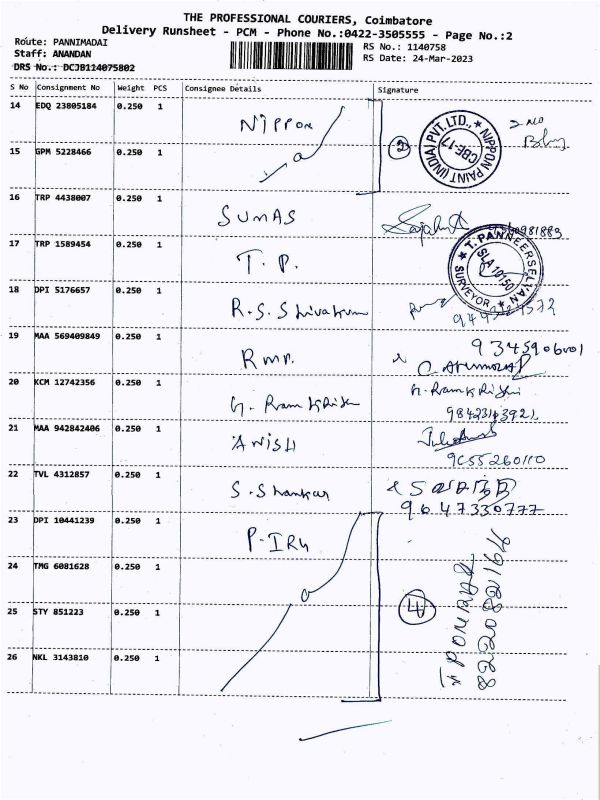 THE PROFESSIONAL COURIERS, Coimbatore
Delivery Runsheet - PCM - Phone No.:0422-3505555 - Page No.:2
Route: PANNIMADAI
RS No.: 1140758
Staff: ANANDAN
RS Date: 24-Mar-2023
DRS No.: DCJB114075802
S No Consignment No Weight PCS Consignee Details Signature
14 EDQ 23805184 0.250 1 NIPPON
15 GPM 5228466 0.250 1
2
NIPPON PAINT (INDIA) PVT. LTD.,
CBE-17
16 TRP 4438007 0.250 1 SUMAS
17 TRP 1589454 0.250 1 T. P.
T. PANNEERSELVAN
SLA 10150
SURVEYOR
18 DPI 5176657 0.250 1 R.S. Shivakum
19 MAA 569409849 0.250 1 RMP. 9345906001
20 KCM 12742356 0.250 1 G. Ram Krish
21 MAA 942842406 0.250 1 ANISH
9055260110
22 TVL 4312857 0.250 1 S. Shankar
9647330777
23 DPI 10441239 0.250 1 P-IRU
24 TMG 6081628 0.250 1
25 STY 851223 0.250 1
4
26 NKL 3143810 0.250 1